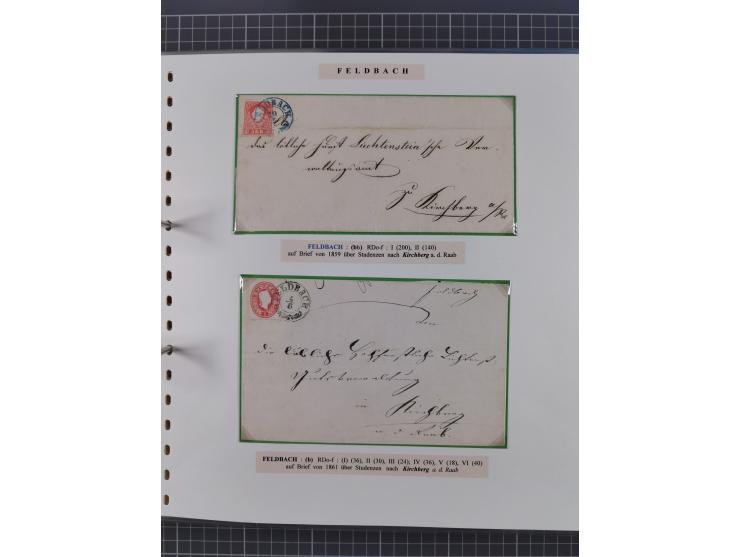 FELDBACH
das löbliche Fürst Liechtenstein'sche Ver-
waltungsamt
zu Kirchberg a/Raab
FELDBACH : (bb) RDo-f : I (200), II (140)
auf Brief von 1859 über Studenzen nach Kirchberg a. d. Raab
FELDBACH
Feldbach
An
die
in Kirchberg
a. d. Raab.
FELDBACH : (b) RDo-f : (I) (36), II (30), III (24); IV (36), V (18), VI (40)
auf Brief von 1861 über Studenzen nach Kirchberg a. d. Raab